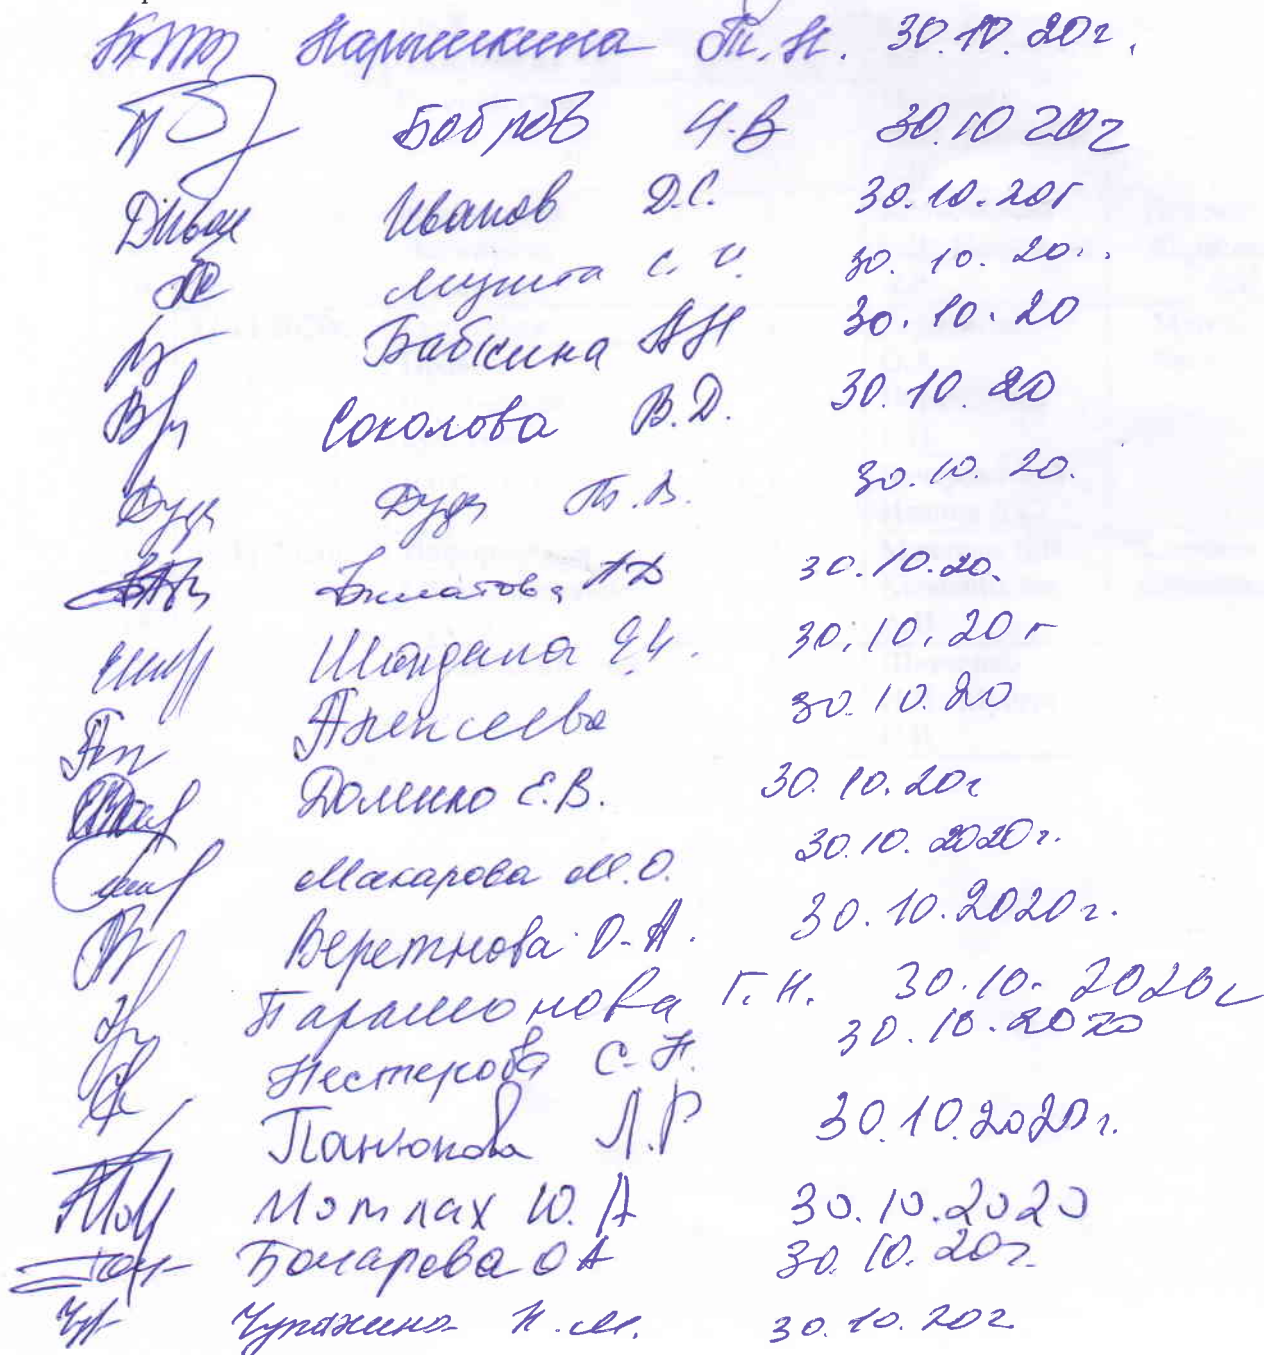 Нарышкина Т.Н. 30.10.20г.
Бобров И.В 30.10 20г
Иванов Д.С. 30.10.20г
Мушта С. И. 30.10.20г.
Бабкина АН 30.10.20
Соколова В.Д. 30.10.20
Дуда Т.В. 30.10.20.
АД 30.10.20.
Шандала Е.И. 30.10.20г
Алексеева 30.10.20
Доленко Е.В. 30.10.20г
Макарова М.О. 30.10.2020г.
Веретнова О.А. 30.10.2020г.
Парамонова Г.Н. 30.10.2020г
Нестерова С.Н. 30.10.2020
Панюкова Л.Р 30.10.2020г.
Мотлах Ю.А 30.10.2020
Бочарова ОА 30.10.20г.
Н.М. 30.10.20г